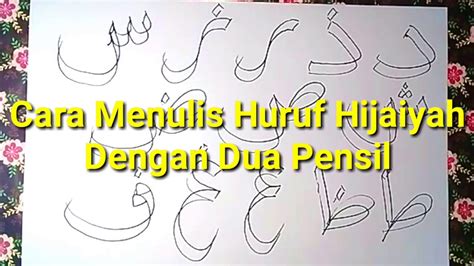 د ذ ر ز س
Cara Menulis Huruf Hijaiyah
ش ص ض
Dengan Dua Pensil
ط ظ ع غ ف